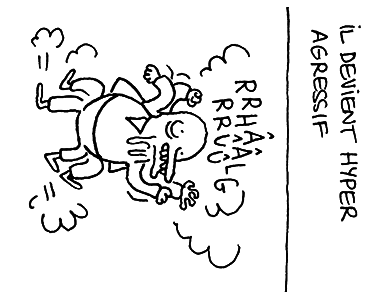 iL DEViENT HYPER
AGRESSiF
RRHÂÂLG
RRÛÛ